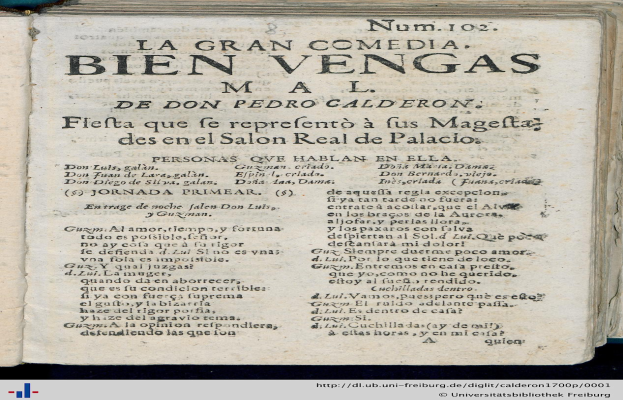 Num. 102.
LA GRAN COMEDIA.
BIEN VENGAS
MAL.
DE DON PEDRO CALDERON.
Fiesta que se representò à sus Magesta-
des en el Salon Real de Palacio.
PERSONAS QVE HABLAN EN ELLA.
Don Luis, galàn. Guzman, criado. Doña Maria, Dama.
Don Juan de Lara, galàn. Espinel, criado. Don Bernardo, viejo.
Don Diego de Silva, galan. Doña Ana, Dama. Inès, criada (Juana, criada
(§) JORNADA PRIMERA. (§)
En trage de noche salen Don Luis,
y Guzman.
Guzm. Al amor, tiempo, y fortuna
todo es possible, señor,
no ay cosa que à su rigor
se defienda d. Lui. Si no es vna:
vna sola es impossible.
Guz. Y qual juzgas?
d. Lui. La muger,
quando da en aborrecer,
que es su condicion terrible:
si ya con fuerça suprema
el gusto, y la bizarria
haze del rigor porfia,
y haze del agravio tema.
Guzm. A la opinion respondiera,
defendiendo las que son
de aquessa regla excepcion,
si ya tan tarde no fuera:
entrate à acostar, que el Alva
en los braços de la Aurora,
aljofar, y perlas llora,
y los paxaros con salva
despiertan al Sol. d. Lui. Què poco
descansarà mi dolor!
Guz. Siempre duerme poco amor.
d. Lui. Por lo que tiene de loco.
Guzm. Entremos en casa presto,
que yo, como no he querido,
estoy al sueño rendido.
Cuchilladas dentro.
d. Lui. Vamos, pues; pero què es esto?
Guzm. El ruido adelante passa.
d. Lui. Es dentro de casa?
Guzm. Si.
d. Lui. Cuchilladas (ay de mi!)
à estas horas, y en mi casa?
A quien
http://dl.ub.uni-freiburg.de/diglit/calderon1700p/0001
© Universitätsbibliothek Freiburg